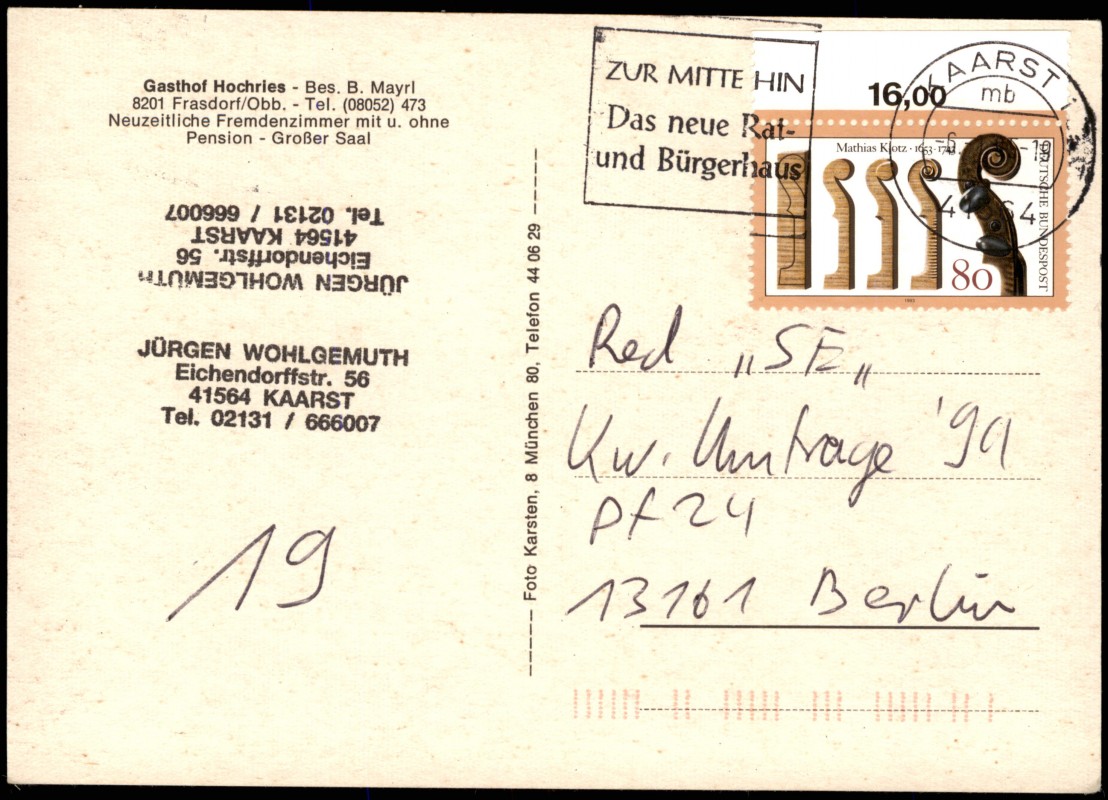 Gasthof Hochries - Bes. B. Mayrl
8201 Frasdorf/Obb. - Tel. (08052) 473
Neuzeitliche Fremdenzimmer mit u. ohne
Pension - Großer Saal
JÜRGEN WOHLGEMUTH
Eichendorffstr. 56
41564 KAARST
Tel. 02131 / 666007
JÜRGEN WOHLGEMUTH
Eichendorffstr. 56
41564 KAARST
Tel. 02131 / 666007
19
Foto Karsten, 8 München 80, Telefon 44 06 29
ZUR MITTE HIN
Das neue Rat-
und Bürgerhaus
16,00
KAARST 1
mb
Mathias Klotz · 1653-1743
DEUTSCHE BUNDESPOST
80
1993
Red „SE„
Kw. Umfrage '9
Pf 24
13161 Berlin